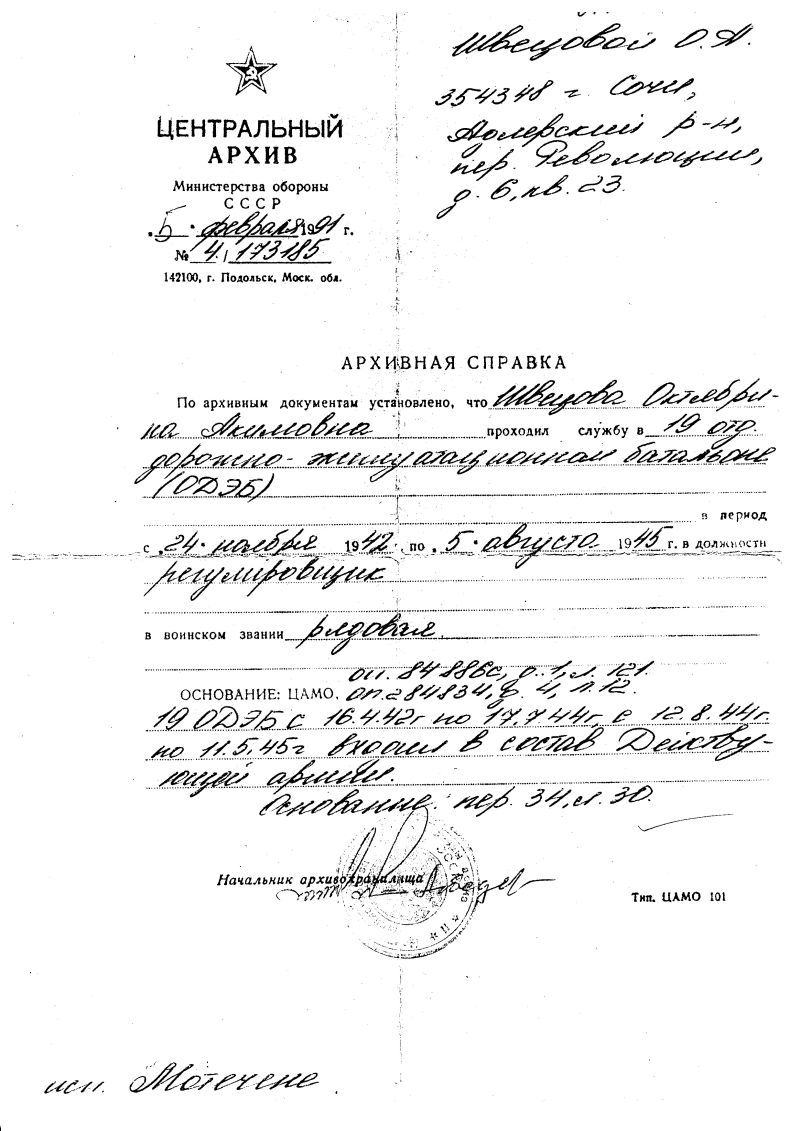 Швецовой О.А.
354348 г. Сочи,
Адлерский р-н,
пер. Революции,
д. 6, кв. 23.
ЦЕНТРАЛЬНЫЙ
АРХИВ
Министерства обороны
СССР
„5" февраля 1991 г.
№ 4/173185
142100, г. Подольск, Моск. обл.
АРХИВНАЯ СПРАВКА
По архивным документам установлено, что Швецова Октябри-
на Акимовна проходил службу в 19 отд.
дорожно-эксплуатационном батальоне
(ОДЭБ)
в период
с „24" ноября 1942 по „5" августа 1945 г. в должности
регулировщик
в воинском звании рядовая.
оп. 84886с, д. 1, л. 121.
ОСНОВАНИЕ: ЦАМО, оп. 284834, д. 4, л. 12.
19 ОДЭБ с 16.4.42г по 17.7.44г, с 12.8.44г.
по 11.5.45г входил в состав Действу-
ющей армии.
Основание: пер. 34, л. 30.
Начальник архивохранилища
Тип. ЦАМО 101
исп. Мотечене